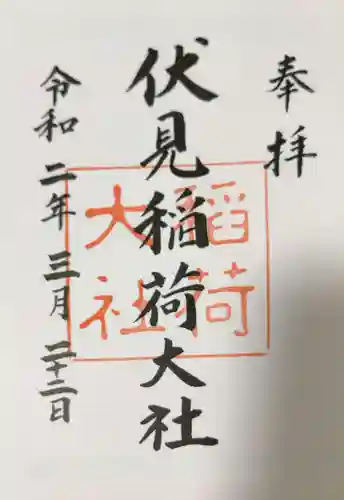 奉拝
伏見稲荷大社
稲荷
大社
令和二年三月二十二日